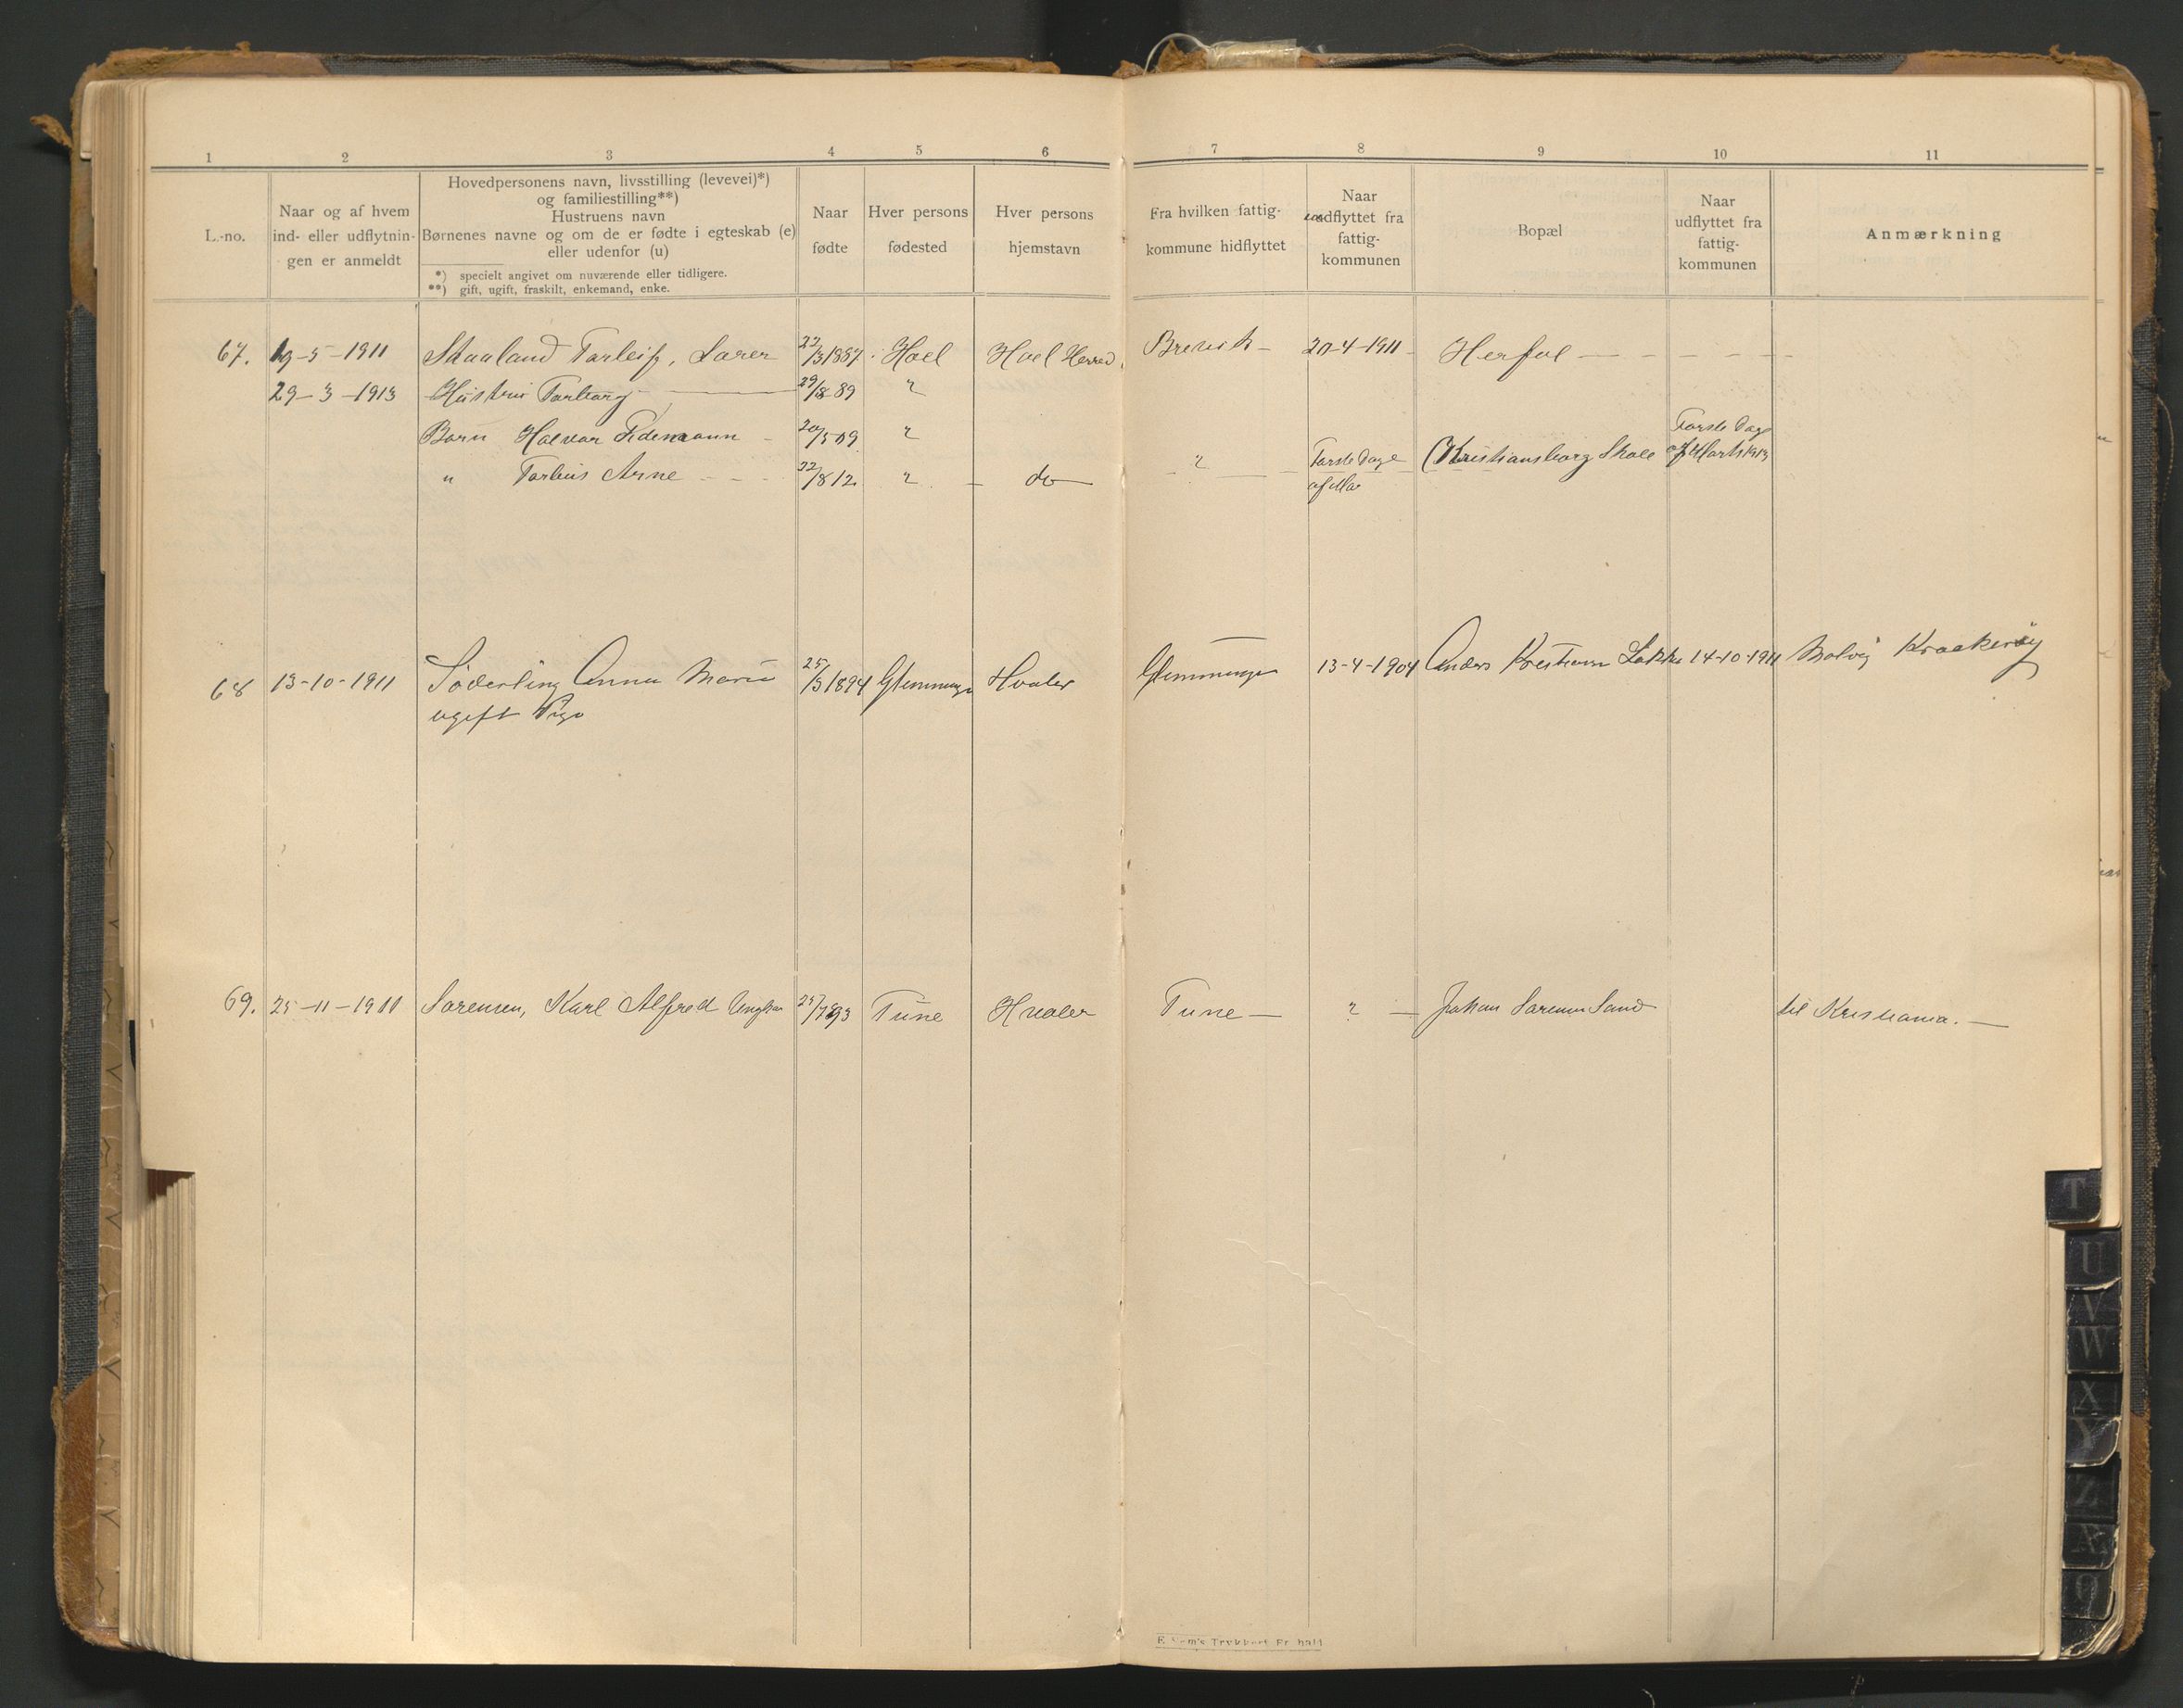 1 2 3 4 5 6 7 8 9 10 11
L.-no.
Naar og af hvem
ind- eller udflytnin-
gen er anmeldt
Hovedpersonens navn, livsstilling (levevei)*)
og familiestilling**)
Hustruens navn
Børnenes navne og om de er fødte i egteskab (e)
eller udenfor (u)
*) specielt angivet om nuværende eller tidligere.
**) gift, ugift, fraskilt, enkemand, enke.
Naar
fødte
Hver persons
fødested
Hver persons
hjemstavn
Fra hvilken fattig-
kommune hidflyttet
Naar
indflyttet fra
fattig-
kommunen
Bopæl
Naar
udflyttet fra
fattig-
kommunen
Anmærkning
67. 19-5-1911 Skauland Tarleif, Lærer 22/3 1887 Hoel Hoel Herred. Brevik – 20-4-1911 – Herføl – – – – –
29-3-1913 Hustru Torborg – 29/8-89 "
Barn Halvar Fidemann – 20/5 09 "
Første Dage af Marts 1913
" Torleus Arne – – 22/8 12 " – do – " – Første Dage af Mar Kristiansborg Skole
68 13-10-1911 Söderling Anna Marie 25/3 1894 Glemminge Hvaler Glemminge 13-4-1904 Anders Kristiansen Løkke 14-10-1911 Kraakerøy
ugift Pige
69. 25-11-1911 Sørensen, Karl Alfred Ungkar 25/7 93 Tune Hvaler Tune – ? – Johan Sørensen Sand til Kristiania. –
T
U
V
W
X
Y
Z
Æ